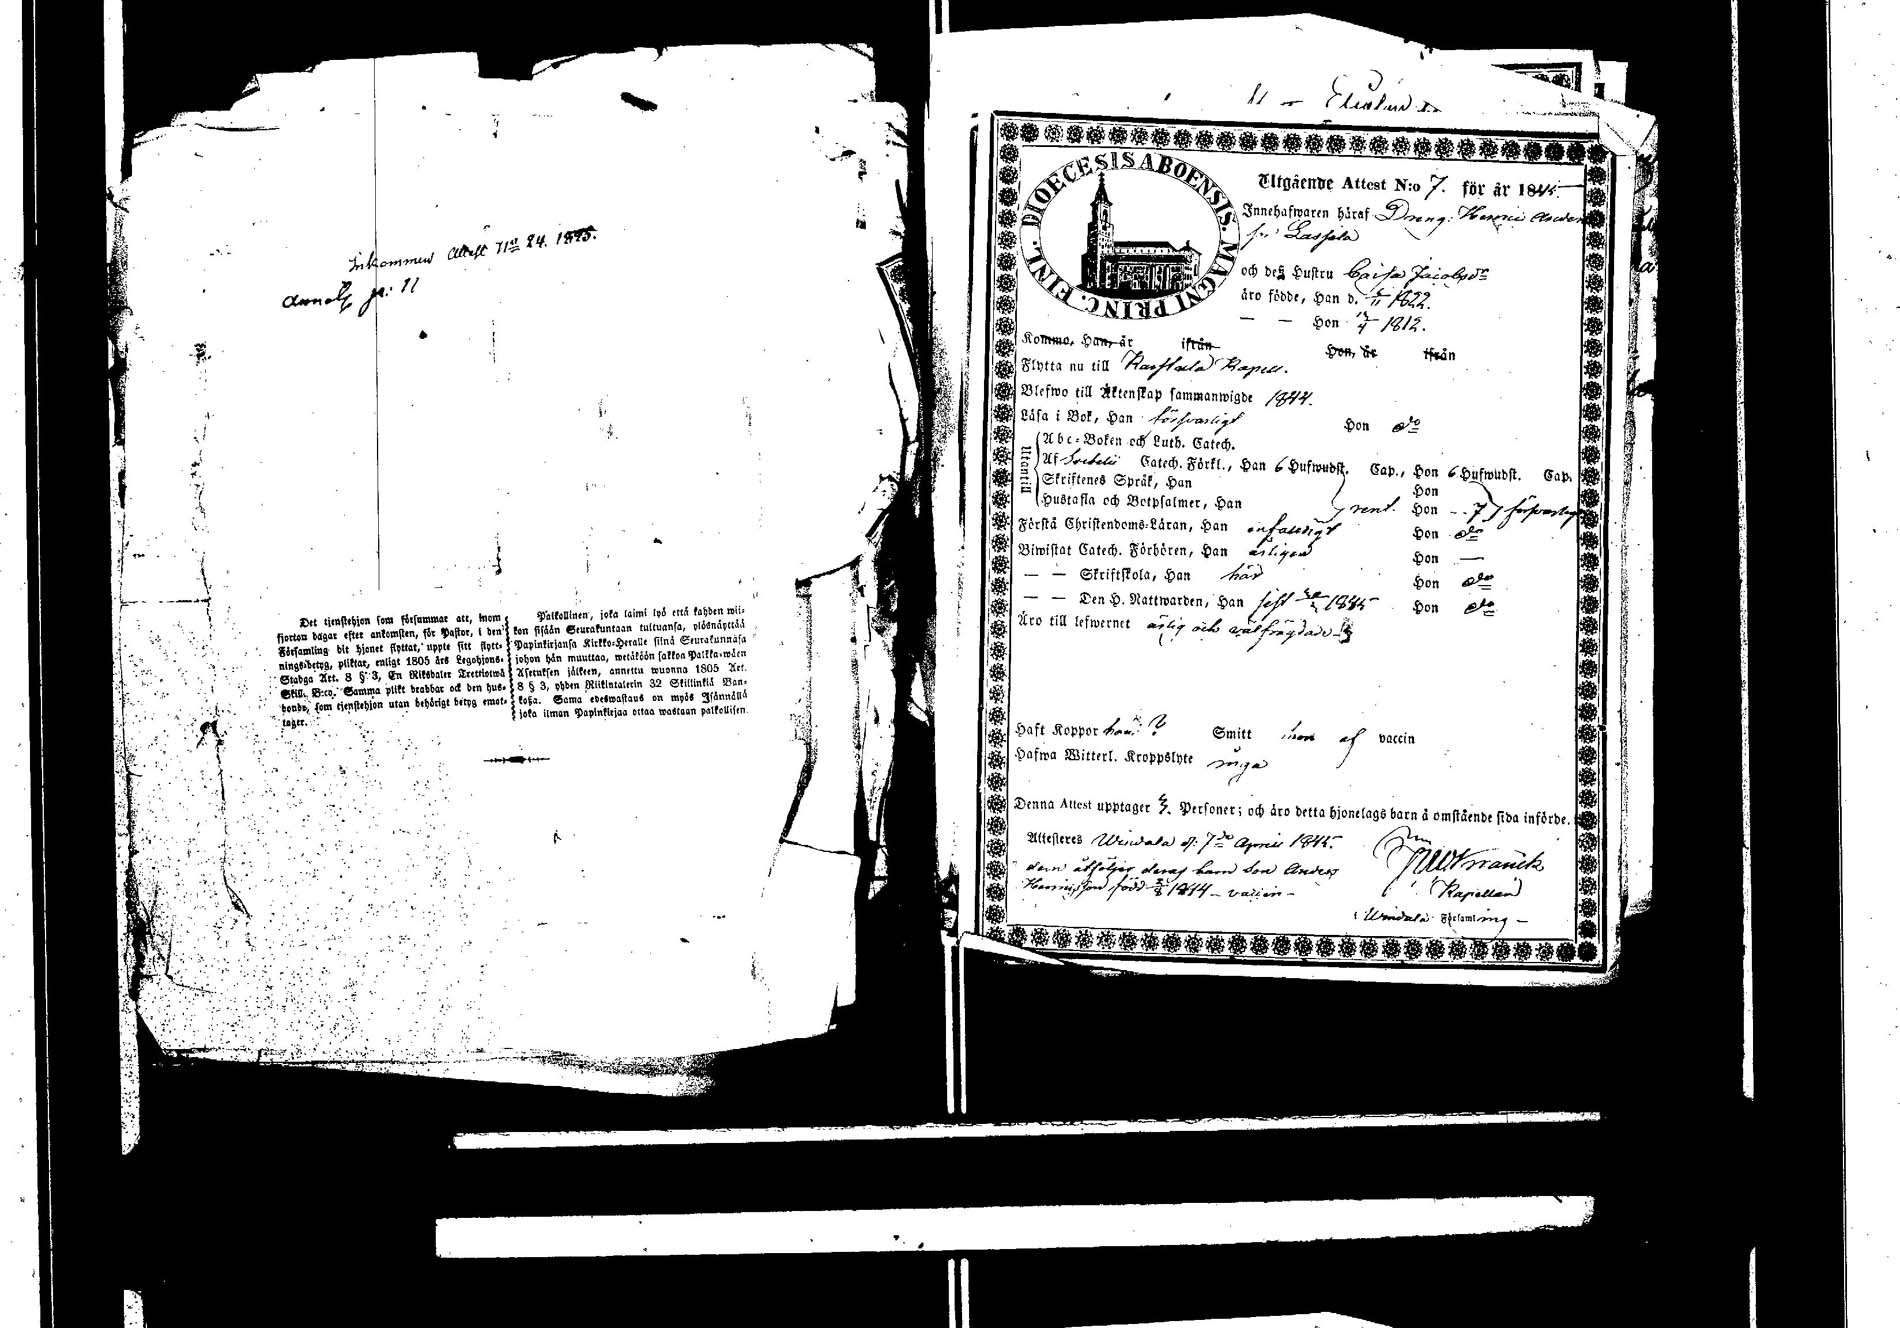 Inkommen Attest N:o 24. 1845.
Det tjenstehjon som försummar att, inom
fjorton dagar efter ankomsten, för Pastor, i den
Församling dit hjonet flyttat, uppte sitt flytt-
ningsbetyg, pliktar, enligt 1805 års Legohjons-
Stadga Art. 8 § 3, En Riksdaler Trettiotwå
Skill. B:co. Samma plikt drabbar ock den hus-
bonde, som tjenstehjon utan behörigt betyg emot-
tager.
Palkollinen, joka laimi lyö että kahden wii-
kon sisään Seurakuntaan tultuansa, ylösnäyttää
Papinkirjansa Kirkko-Herralle siinä Seurakunnasa
johon hän muuttaa, wetäköön sakkoa Palkka-wäen
Asetuksen jälkeen, annettu wuonna 1805 Art.
8 § 3, yhden Riikintalerin 32 Skillinkiä Ban-
koßa. Sama edeswastaus on myös Isännällä
joka ilman Papinkirjaa ottaa wastaan palkollisen.
DIOECESIS ABOENSIS. MAGNI PRINC. FINL.
Utgående Attest N:o 7. för år 1845
Innehafwaren häraf Dreng. Henric
fr. Lassila
och des Hustru Caisa Jacobsdr
äro födde, Han d. 1822.
— — Hon 1812.
Komme, Han, är ifrån Hon, är ifrån
Flytta nu till Karstula Kapell.
Blefwo till Äktenskap sammanwigde 1844.
Läsa i Bok, Han försvarligt Hon do
Utantill
Abc-Boken och Luth. Catech.
Af Svebelii Catech. Förkl., Han 6 Hufwudst. Cap., Hon 6 Hufwudst. Cap.
Skriftenes Språk, Han Hon
Hustafla och Botpsalmer, Han rent. Hon försvarligt
Förstå Christendoms-Läran, Han enfaldigt Hon do
Biwistat Catech. Förhören, Han årligen Hon —
— — Skriftskola, Han här Hon do
— — Den H. Nattwarden, Han sist 1845 Hon do
Äro till lefwernet ärlig och välfrägdade
Haft Koppor han? Smitt hon af vaccin
Hafwa Witterl. Kroppslyte inga
Denna Attest upptager 3. Personer; och äro detta hjonelags barn å omstående sida införde.
Attesteras Wiridala d. 7de April 1845.
dem åtföljer deras barn Son Anders
Henricsson född 1844 – vaccin –
Kapellan
i Församling –